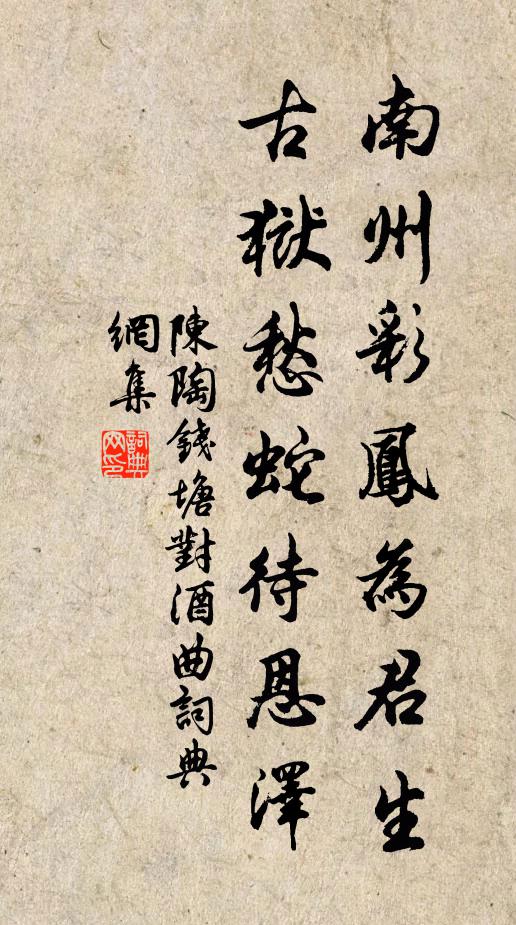 南州彩鳳為君生
古獄愁蛇待恩澤
陳陶錢塘對酒曲詞典
網集
詞典網印